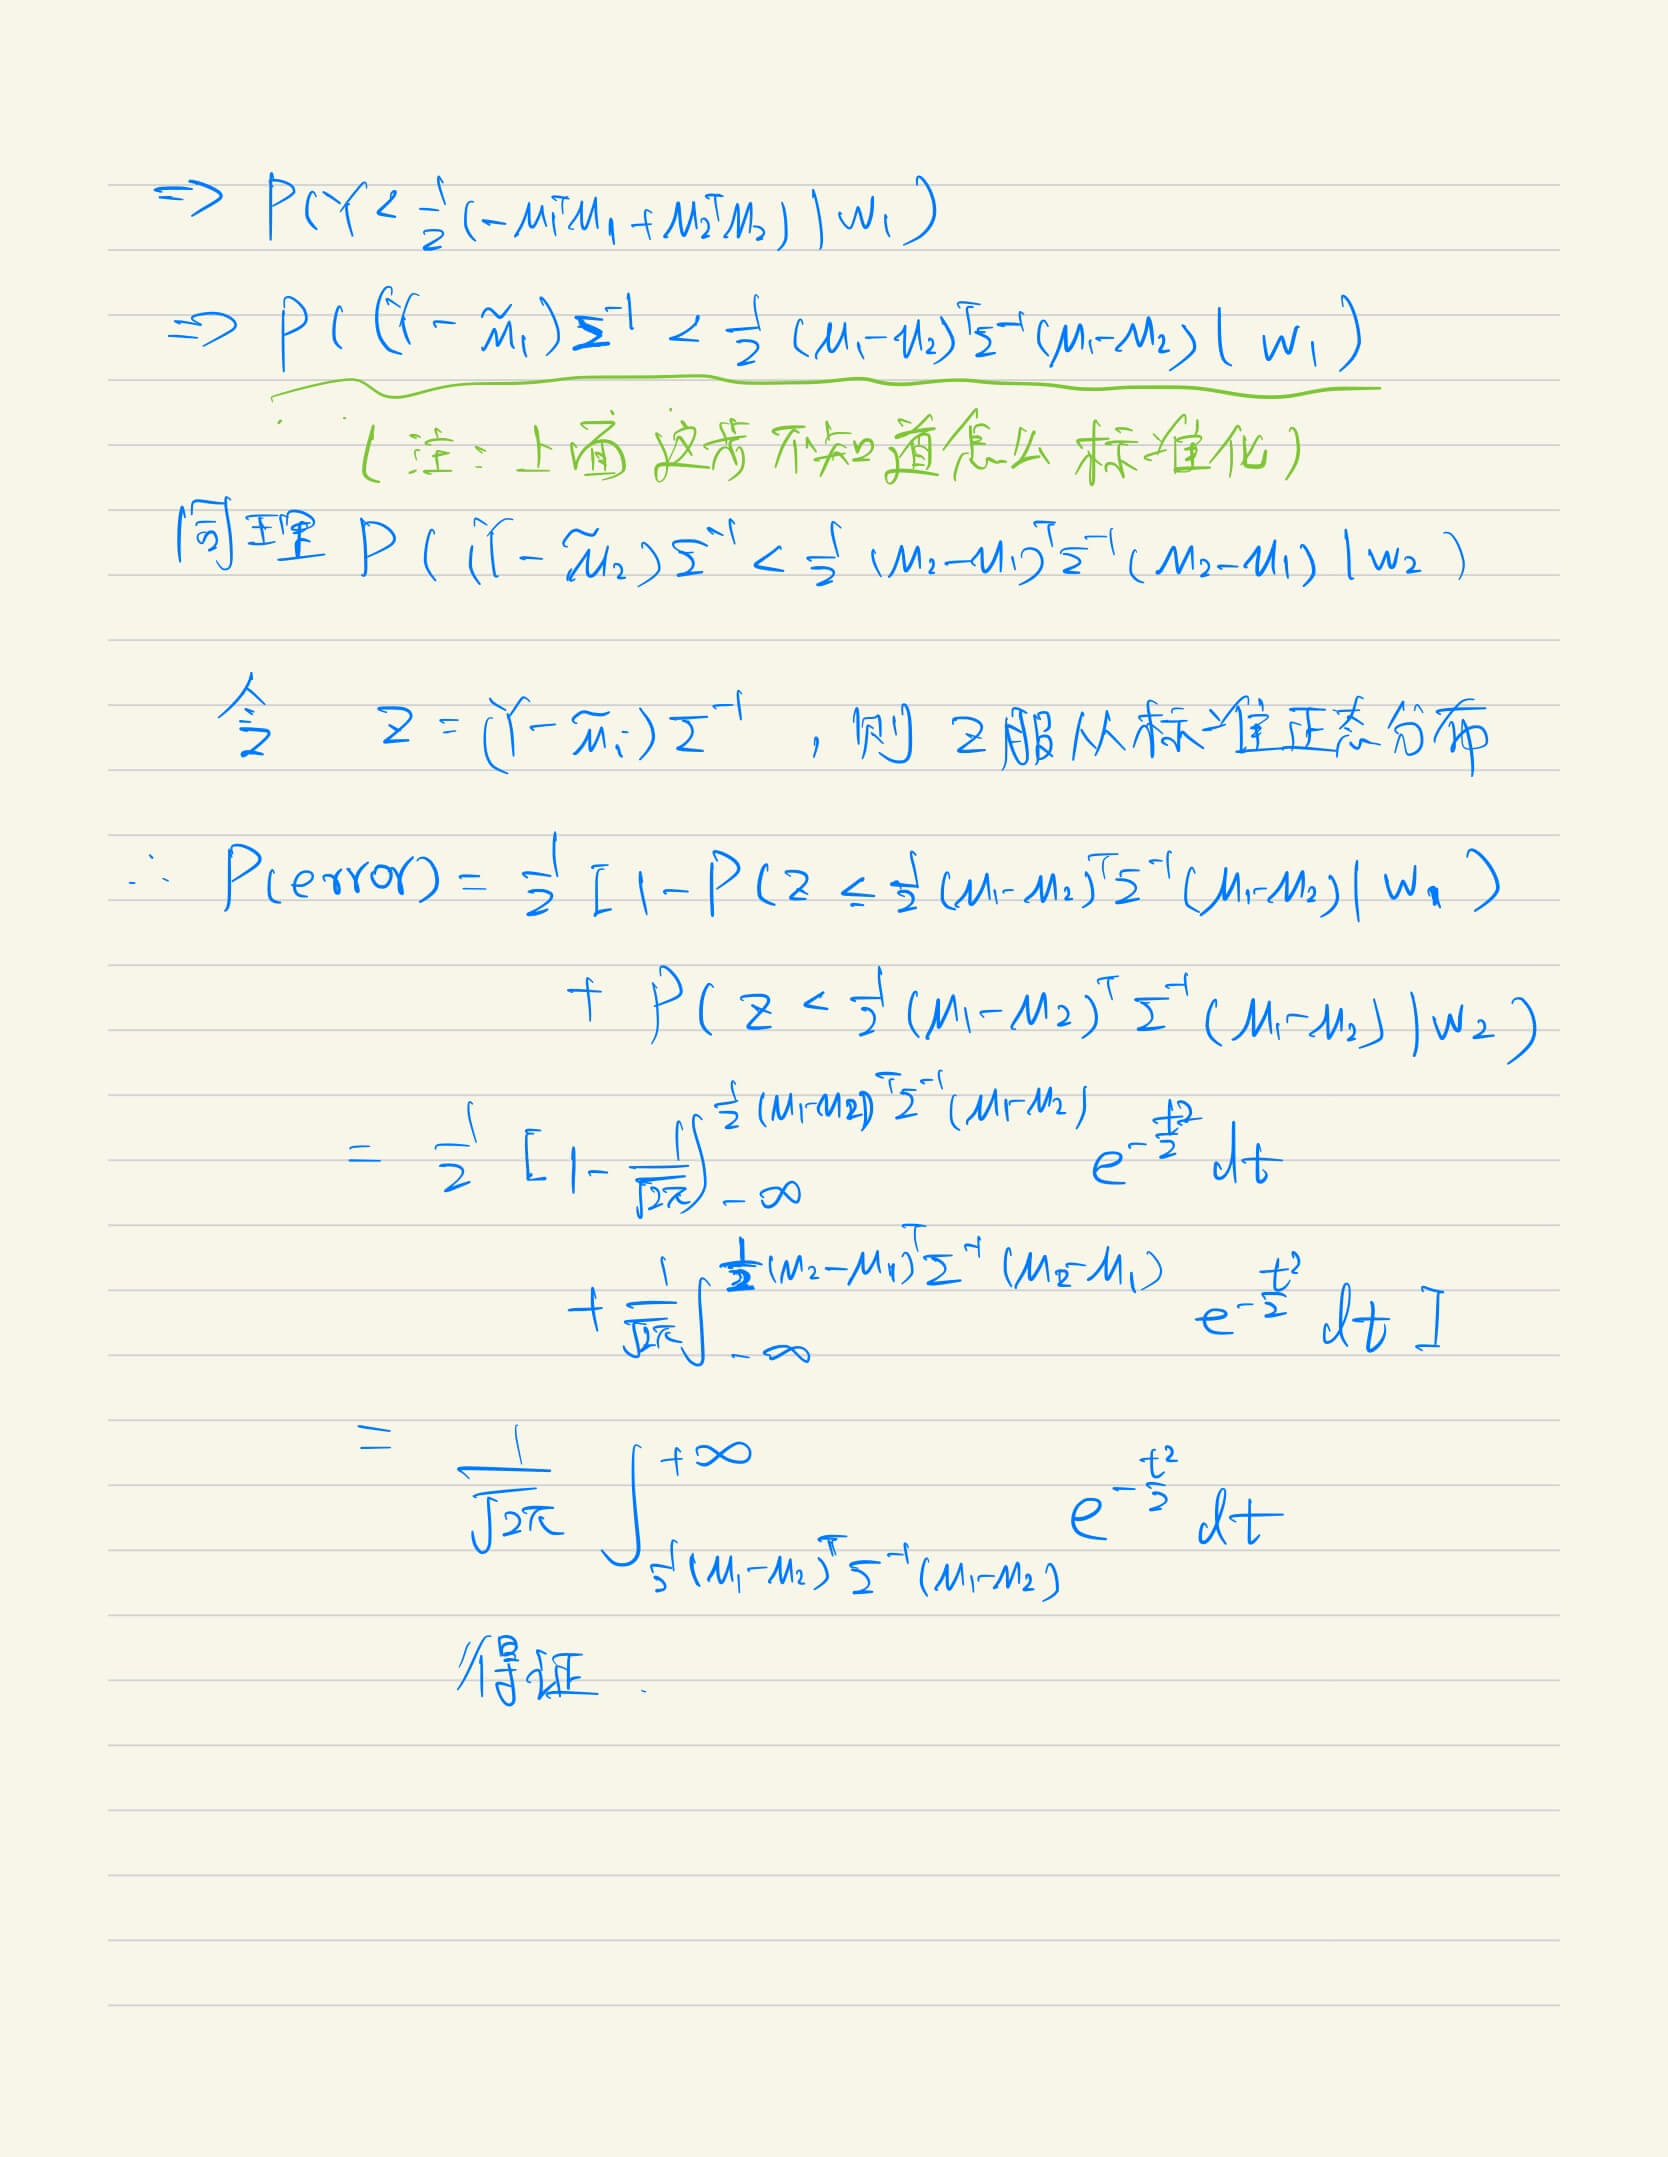 ⇒ P(Y < 1/2 (-μ₁ᵀμ₁ + μ₂ᵀμ₂) | w₁)
⇒ P((Y - μ̃₁)Σ⁻¹ < 1/2 (μ₁-μ₂)ᵀΣ⁻¹(μ₁-μ₂) | w₁)
(注:上面这步不知道怎么标准化)
同理 P((Y - μ̃₂)Σ⁻¹ < 1/2 (μ₂-μ₁)ᵀΣ⁻¹(μ₂-μ₁) | w₂)
令 z = (Y - μ̃ᵢ)Σ⁻¹ , 则 z服从标准正态分布
∴ P(error) = 1/2 [1 - P(z ≤ 1/2 (μ₁-μ₂)ᵀΣ⁻¹(μ₁-μ₂) | w₁)
+ P(z < 1/2 (μ₁-μ₂)ᵀΣ⁻¹(μ₁-μ₂) | w₂)
= 1/2 [1 - 1/√2π ∫_{-∞}^{1/2 (μ₁-μ₂)ᵀΣ⁻¹(μ₁-μ₂)} e^{-t²/2} dt
+ 1/√2π ∫_{-∞}^{1/2 (μ₂-μ₁)ᵀΣ⁻¹(μ₂-μ₁)} e^{-t²/2} dt]
= 1/√2π ∫_{1/2 (μ₁-μ₂)ᵀΣ⁻¹(μ₁-μ₂)}^{+∞} e^{-t²/2} dt
得证.